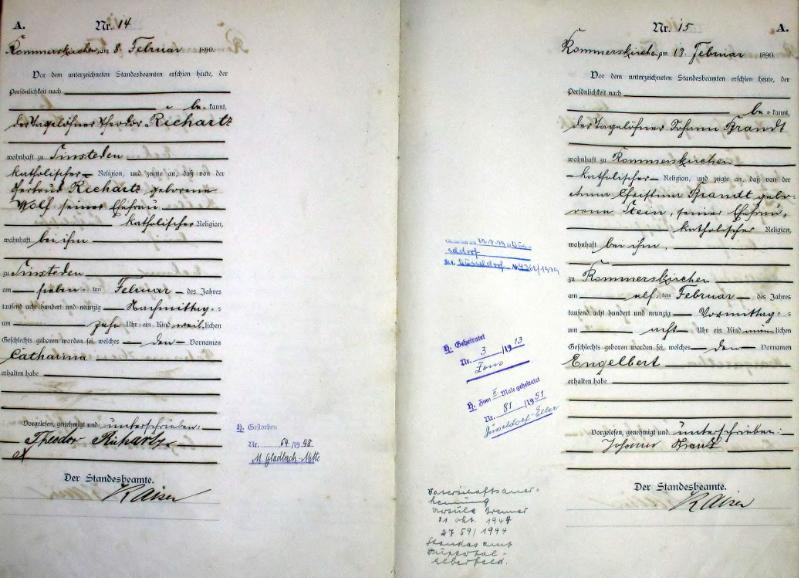 A. Nr. 14
Kommerskirchen, am 8. Februar 1890.
Vor dem unterzeichneten Standesbeamten erschien heute, der
Persönlichkeit nach
be kannt,
der Tagelöhner Theodor Richartz
wohnhaft zu Sinsteden
katholischer Religion, und zeigte an, daß von der
Gertrud Richartz geborene
Wolf, seiner Ehefrau
katholischer Religion,
wohnhaft bei ihm
zu Sinsteden
am sieben ten Februar des Jahres
tausend acht hundert und neunzig Nachmittags
um zehn Uhr ein Kind weiblichen
Geschlechts geboren worden sei, welches den Vornamen
Catharina
erhalten habe
Vorgelesen, genehmigt und unterschrieben:
Theodor Richartz
Der Standesbeamte.
Kaiser
H. Gestorben
Nr. 64/1948
M. Gladbach-Mitte
Nr. 15 A.
Kommerskirchen, am 13. Februar 1890.
Vor dem unterzeichneten Standesbeamten erschien heute, der
Persönlichkeit nach
be kannt,
der Tagelöhner Johann Brandt
wohnhaft zu Kommerskirchen
katholischer Religion, und zeigte an, daß von der
Anna Christina Brandt gebo-
rene Stein, seiner Ehefrau
katholischer Religion,
wohnhaft bei ihm,
zu Kommerskirchen
am elf ten Februar des Jahres
tausend acht hundert und neunzig Vormittags
um acht Uhr ein Kind männlichen
Geschlechts geboren worden sei, welches den Vornamen
Engelbert
erhalten habe
Vorgelesen, genehmigt und unterschrieben:
Johann Brandt
Der Standesbeamte.
Kaiser
H. Geheiratet
Nr. 3 /1913
Zons
H. Zum 2. Male geheiratet
Nr. 81 /1951
Düsseldorf-Eller
Vaterschaftsaner-
kennung
Ursula
21 Okt. 1944
2759/1944
Standesamt
Wuppertal-
Elberfeld.